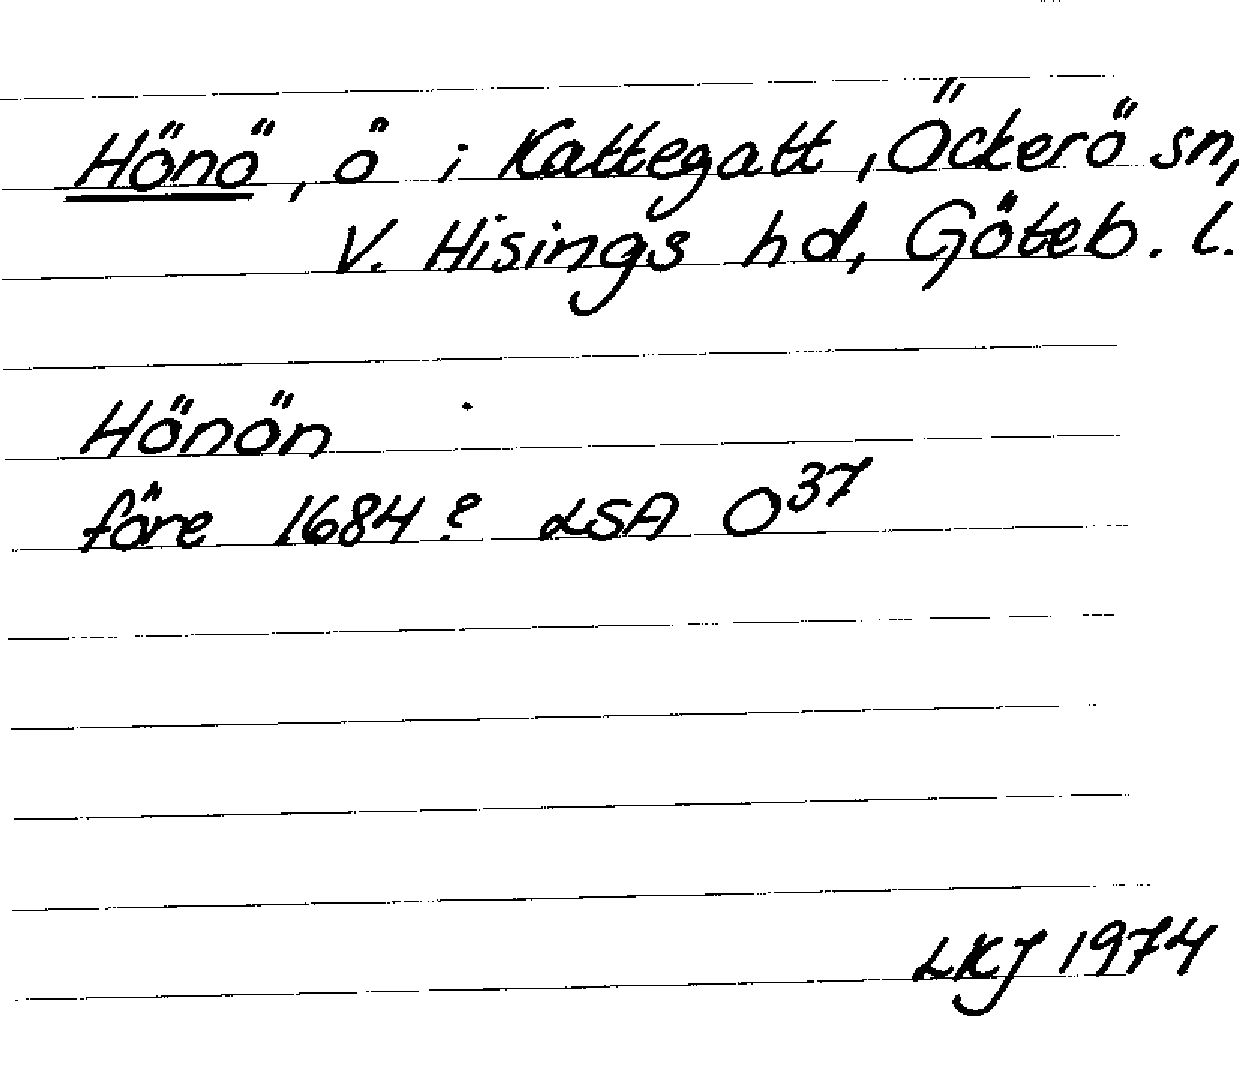 Hönö, ö i Kattegatt, Öckerö sn,
V. Hisings hd, Göteb. l.
Hönön
före 1684? LSA O37
LKJ 1974